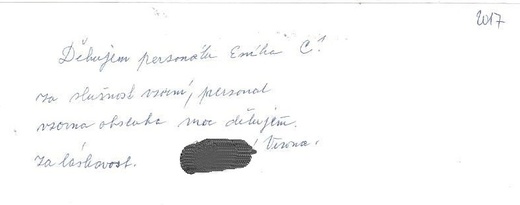 2017
Děkujem personálu Emilka C!
za slušnost vzorní, personal
vzorna obsluha moc děkujem.
za láskavost. Verona.